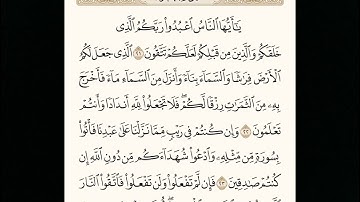 يَٰٓأَيُّهَا ٱلنَّاسُ ٱعْبُدُوا۟ رَبَّكُمُ ٱلَّذِى
خَلَقَكُمْ وَٱلَّذِينَ مِن قَبْلِكُمْ لَعَلَّكُمْ تَتَّقُونَ ٢١ ٱلَّذِى جَعَلَ لَكُمُ
ٱلْأَرْضَ فِرَٰشًا وَٱلسَّمَآءَ بِنَآءً وَأَنزَلَ مِنَ ٱلسَّمَآءِ مَآءً فَأَخْرَجَ
بِهِۦ مِنَ ٱلثَّمَرَٰتِ رِزْقًا لَّكُمْ ۖ فَلَا تَجْعَلُوا۟ لِلَّهِ أَندَادًا وَأَنتُمْ
تَعْلَمُونَ ٢٢ وَإِن كُنتُمْ فِى رَيْبٍ مِّمَّا نَزَّلْنَا عَلَىٰ عَبْدِنَا فَأْتُوا۟
بِسُورَةٍ مِّن مِّثْلِهِۦ وَٱدْعُوا۟ شُهَدَآءَكُم مِّن دُونِ ٱللَّهِ إِن
كُنتُمْ صَٰدِقِينَ ٢٣ فَإِن لَّمْ تَفْعَلُوا۟ وَلَن تَفْعَلُوا۟ فَٱتَّقُوا۟ ٱلنَّارَ